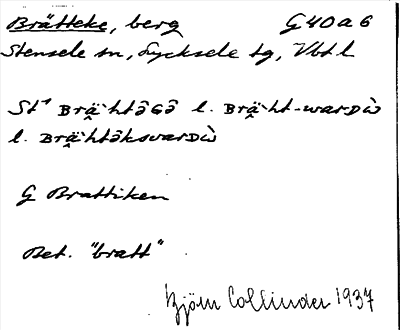 Brätteke, berg G 40 a 6
Stensele sn, Lycksele tg, Vbt l
St⁺ BRä̯`htâGâ l. BRä̯`ht-waRDù
l. BRä̯`htâksvaRDù
G Brattiken
Bet. "bratt"
Björn Collinder 1937